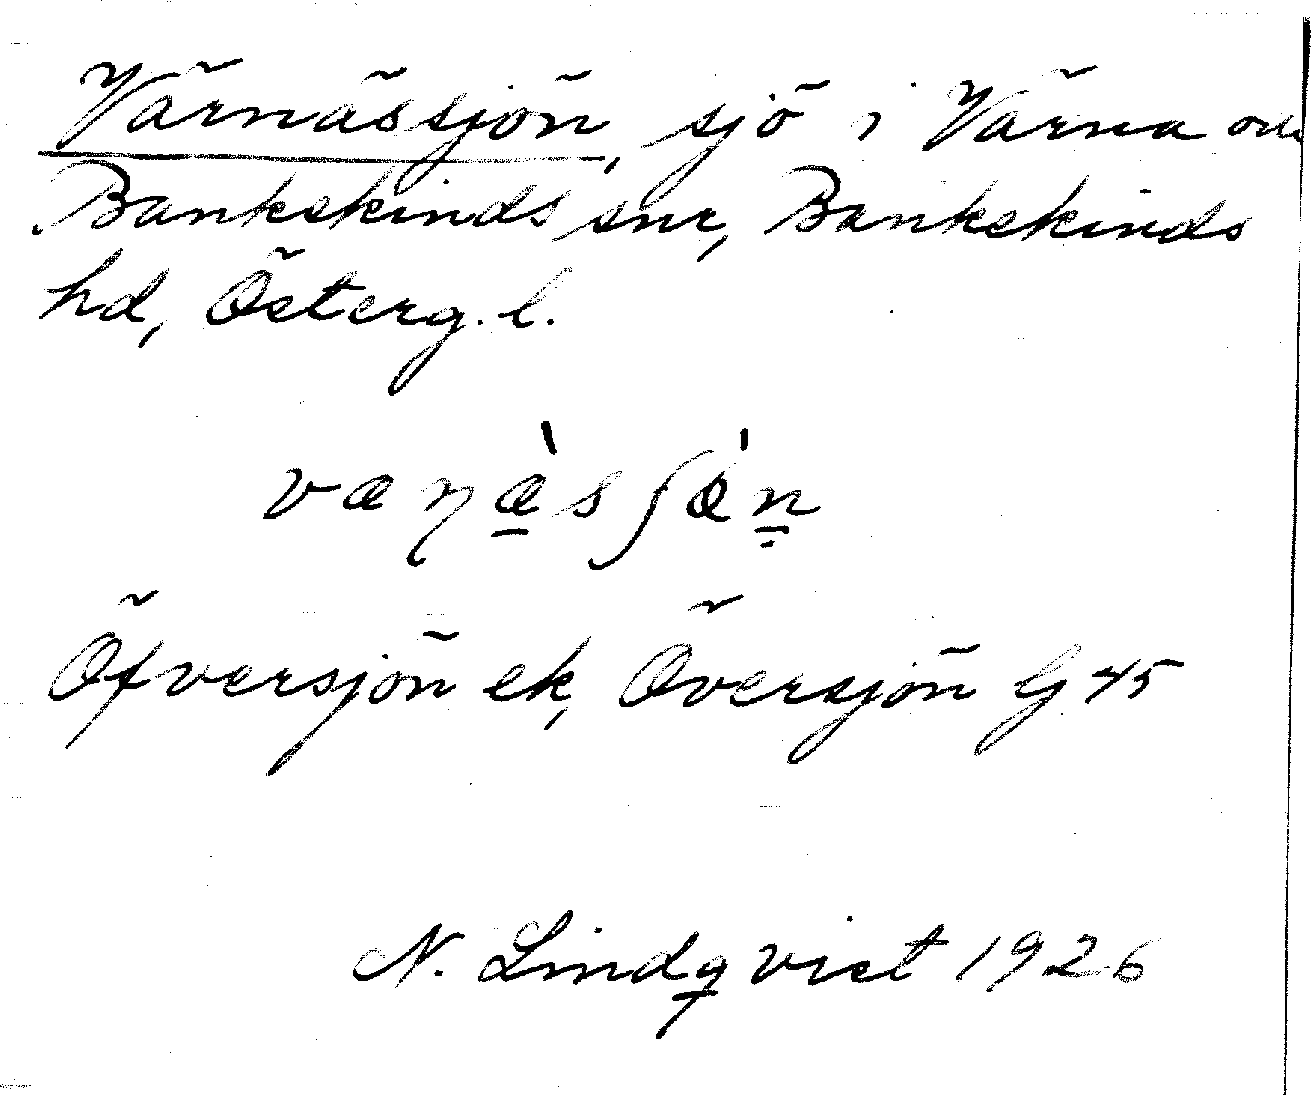 Värnässjön, sjö i Värna och
Bankekinds snr, Bankekinds
hd, Österg. l.
væɳæ̀sʃɵ̀n
Öfversjön ek, Översjön G 45
N. Lindqvist 1926